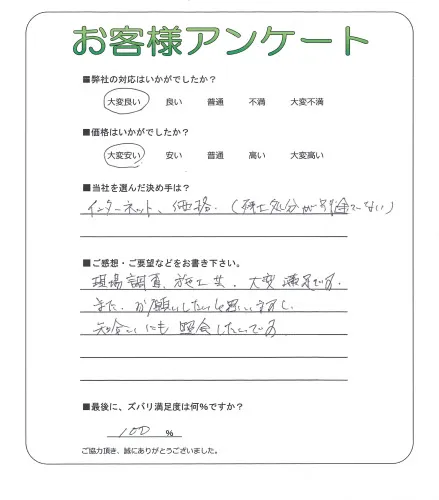 お客様アンケート
■弊社の対応はいかがでしたか?
大変良い 良い 普通 不満 大変不満
■価格はいかがでしたか?
大変安い 安い 普通 高い 大変高い
■当社を選んだ決め手は?
インターネット、価格、(残土処分が別金でない)
■ご感想・ご要望などをお書き下さい。
現場調査、施工共、大変満足です。
また、お願いしたいと思いますし、
知合いにも照会したいです
■最後に、ズバリ満足度は何%ですか?
100 %
ご協力頂き、誠にありがとうございました。